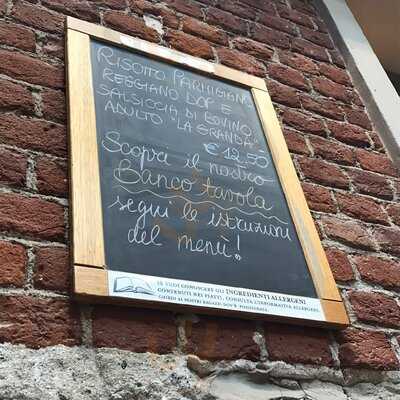 RISOTTO PARMIGIANO
REGGIANO DOP E
SALSICCIA DI BOVINO
ADULTO "LA GRANDA"
€ 12,50
Scopri il nostro
Banco tavola
segui le istruzioni
del menù!
SE VUOI CONOSCERE GLI INGREDIENTI ALLERGENI
CONTENUTI NEI PIATTI, CONSULTA L'INFORMATIVA ALLERGENI.
CHIEDI AI NOSTRI RAGAZZI DOV'È POSSIBILE.